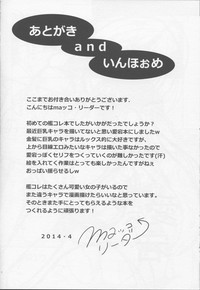 あとがき
and
いんほぉめ
ここまでお付き合いありがとうございます。
こんにちはmaッコ・リーダーです！
初めての艦コレ本でしたがいかがだったでしょうか？
最近巨乳キャラを描いてないと思い愛宕本にしましたw
金髪に巨乳のキャラはルックス的に大好きですが、
上から目線エロみたいなキャラって描いた事なかったので
愛宕っぽくセリフをつくっていくのが難しかったです(汗)
絵を入れてく作業はとっても楽しかったんですけどねぇ
おっぱい揺らせるしw
艦コレはたくさん可愛い女の子がいるので
また違うキャラで漫画描けたらいいなと思っています。
そのときまた手にとってもらえるような本を
つくれるように頑張ります！
2014・4
maッコ
リーダー